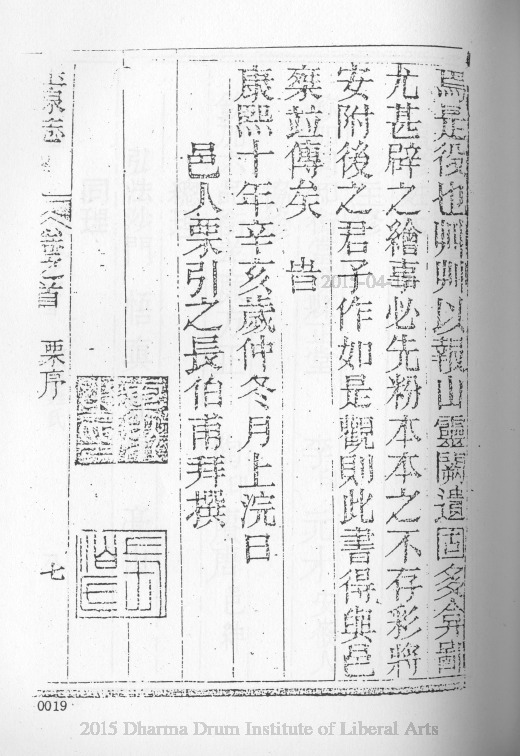 焉是役也則以報山靈闕遺固多舛剛
尤甚辟之繪事必先粉本本之不存彩將
安附後之君子作如是觀則此書得與邑
乘竝傳矣 旹
康熙十年辛亥歲仲冬月上浣日
邑人栗引之長伯甫拜撰
之首 栗序
七
0019
2015 Dharma Drum Institute of Liberal Arts